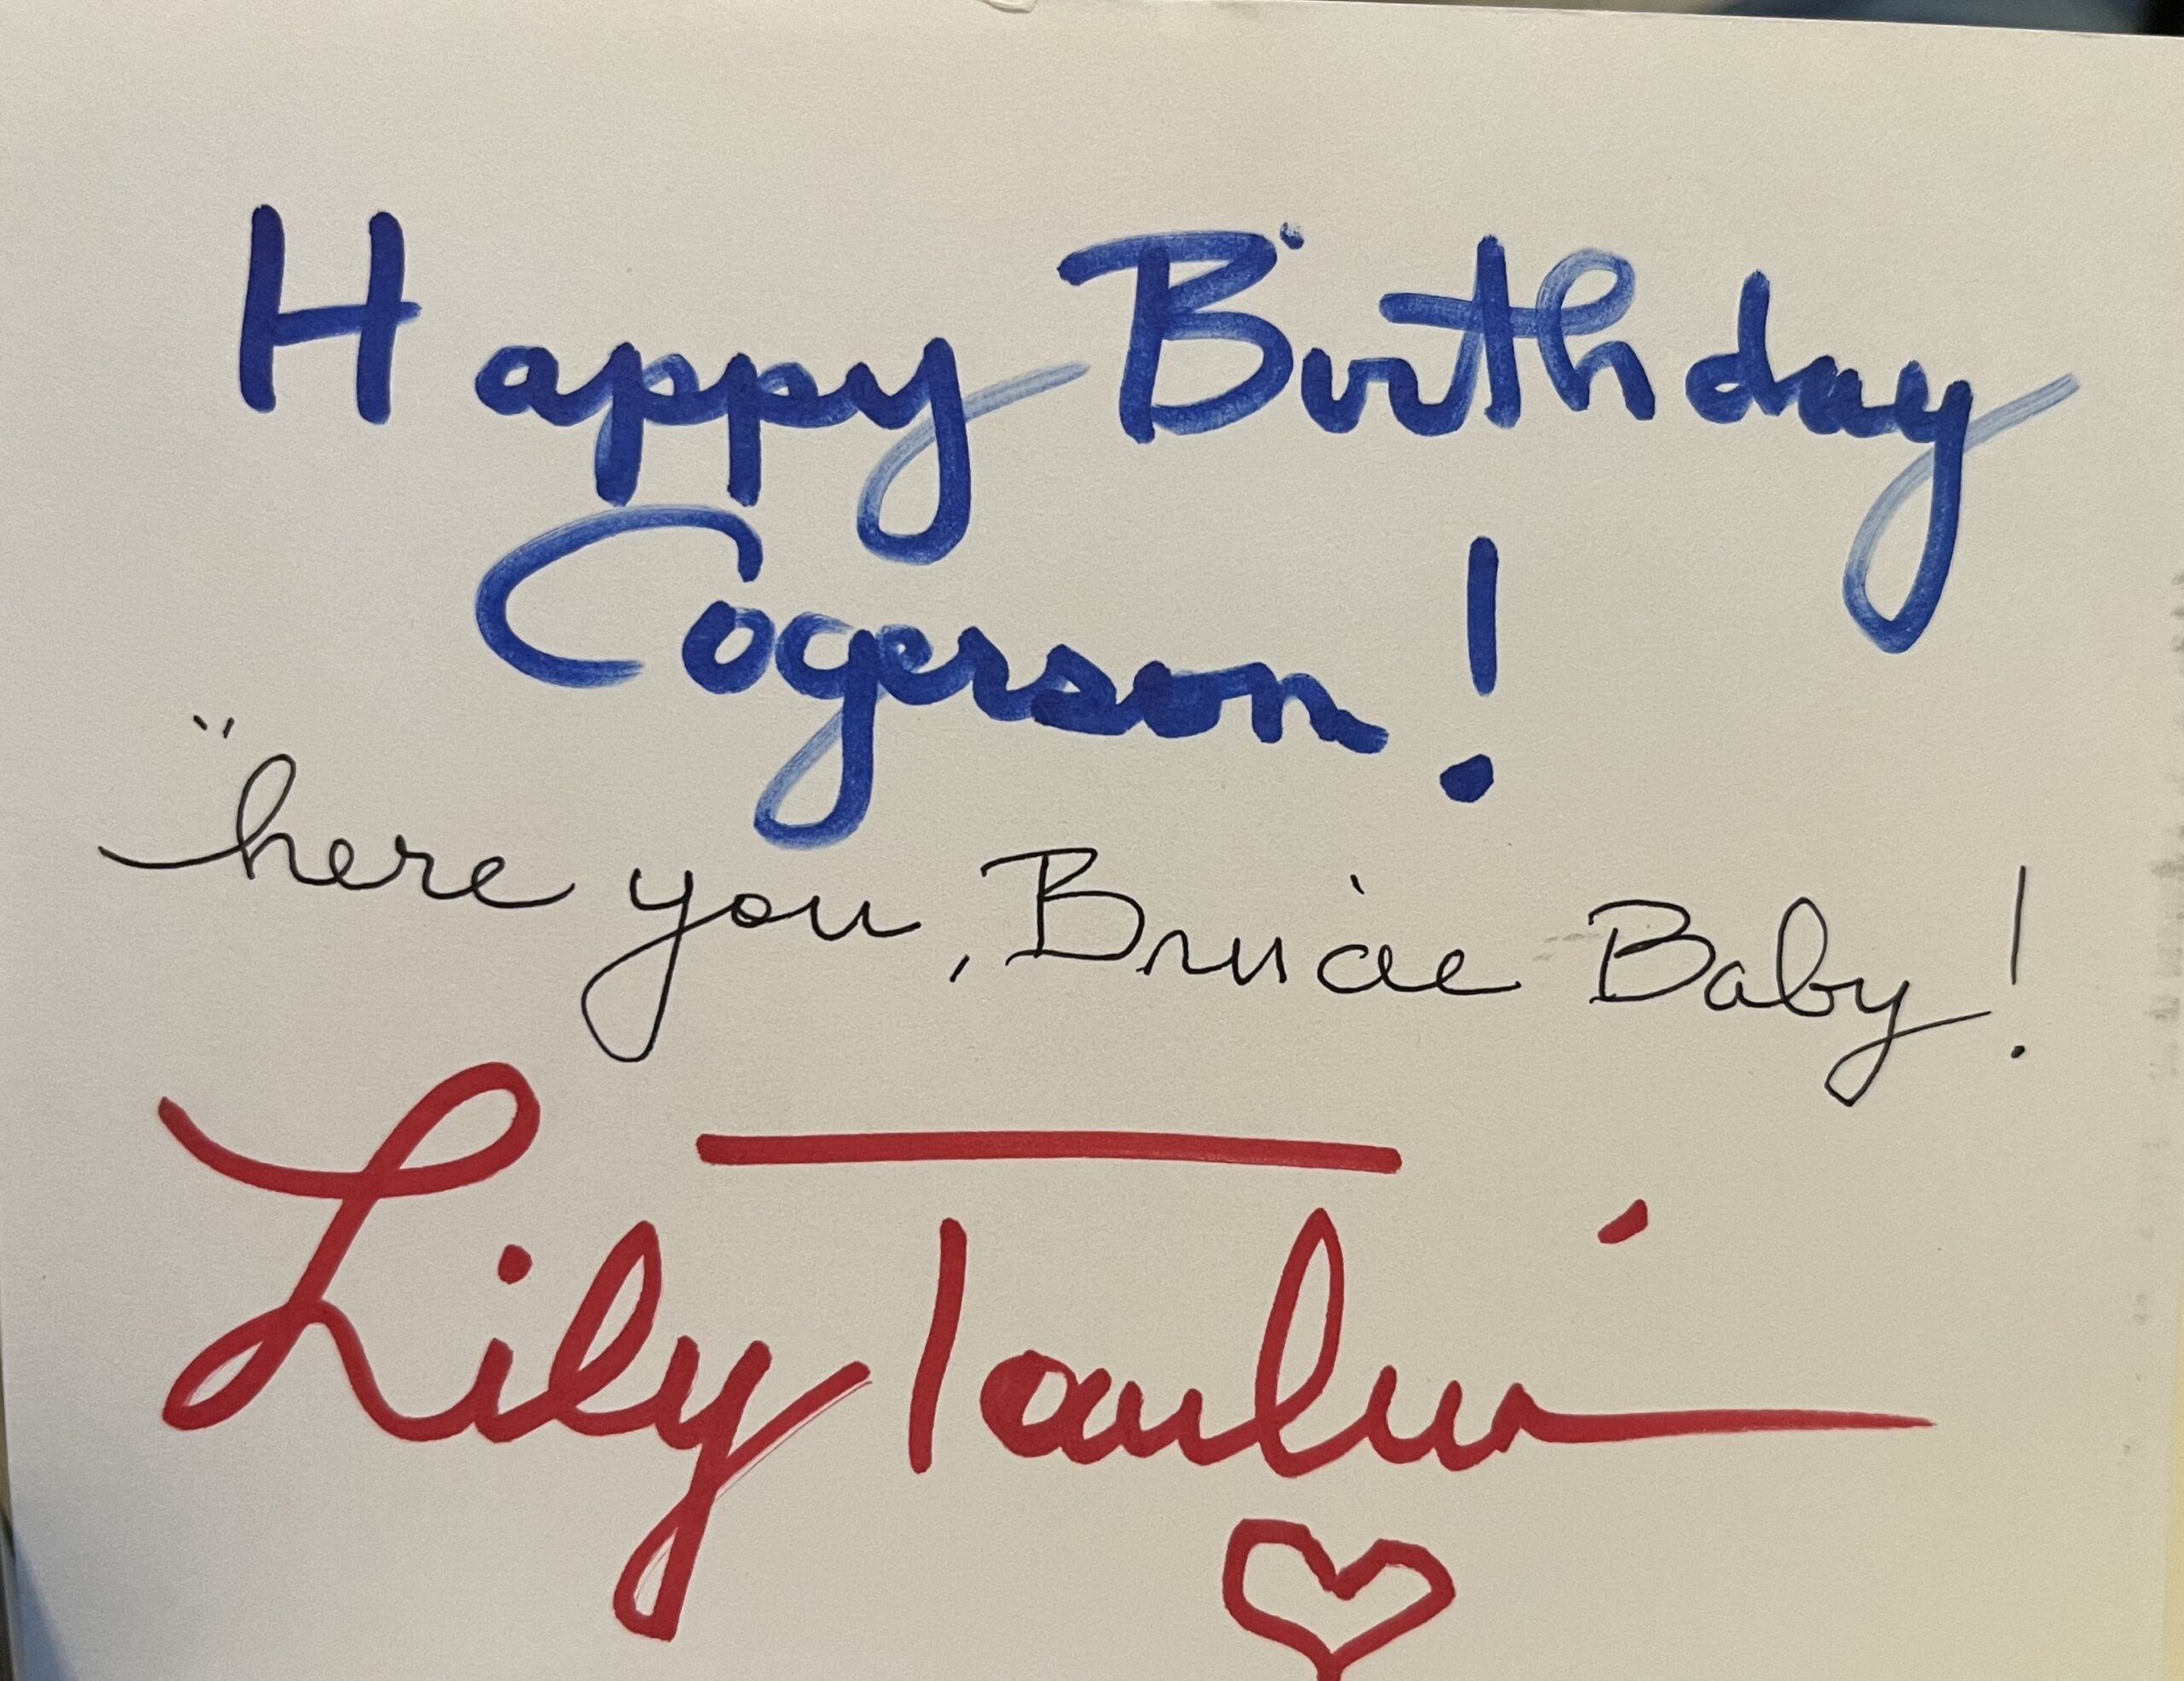 Happy Birthday
Cogerson!
"here you, Brucie Baby!
Lily Tomlin